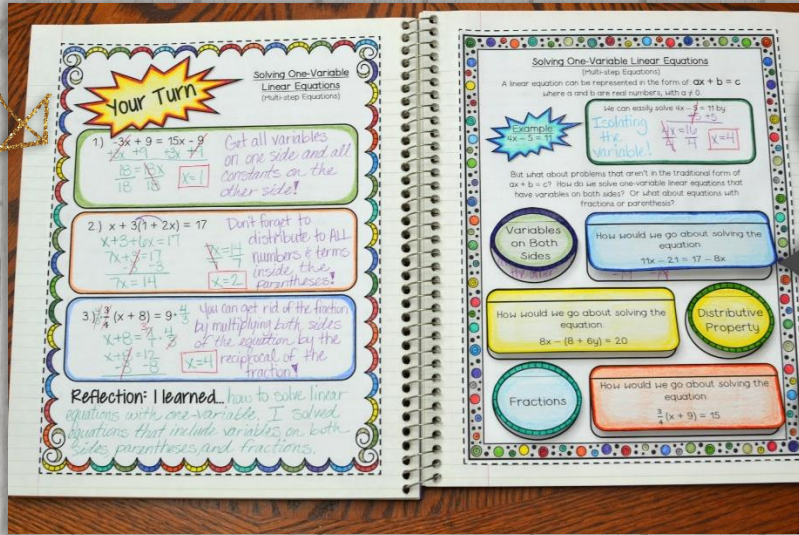 Your Turn
Solving One-Variable
Linear Equations
(Multi-step Equations)
1) -3x + 9 = 15x - 9
+3x +9 +3x +9
18 = 18x
18 18
x=1
Get all variables
on one side and all
constants on the
other side!
2.) x + 3(1 + 2x) = 17
x+3+6x=17
7x+3=17
-3 -3
7x = 14
7x=14
7 7
x=2
Don't forget to
distribute to ALL
numbers & terms
inside the
parentheses!
3.) 4/3 · 3/4 (x + 8) = 9 · 4/3
x+8= 9 · 4/3
x+8=12
-8 -8
x=4
You can get rid of the fraction
by multiplying both sides
of the equation by the
reciprocal of the
fraction!
Reflection: I learned... how to solve linear
equations with one-variable. I solved
equations that include variables on both
sides, parentheses, and fractions.
Solving One-Variable Linear Equations
(Multi-step Equations)
A linear equation can be represented in the form of ax + b = c
where a and b are real numbers, with a ≠ 0.
Example
4x - 5 = 11
We can easily solve 4x - 5 = 11 by
Isolating
the
variable!
+5 +5
4x=16
4 4
x=4
But what about problems that aren't in the traditional form of
ax + b = c? How do we solve one-variable linear equations that
have variables on both sides? Or what about equations with
fractions or parenthesis?
Variables
on Both
Sides
How would we go about solving the
equation
11x - 21 = 17 - 8x
How would we go about solving the
equation
8x - (8 + 6y) = 20
Distributive
Property
Fractions
How would we go about solving the
equation
3/4 (x + 9) = 15